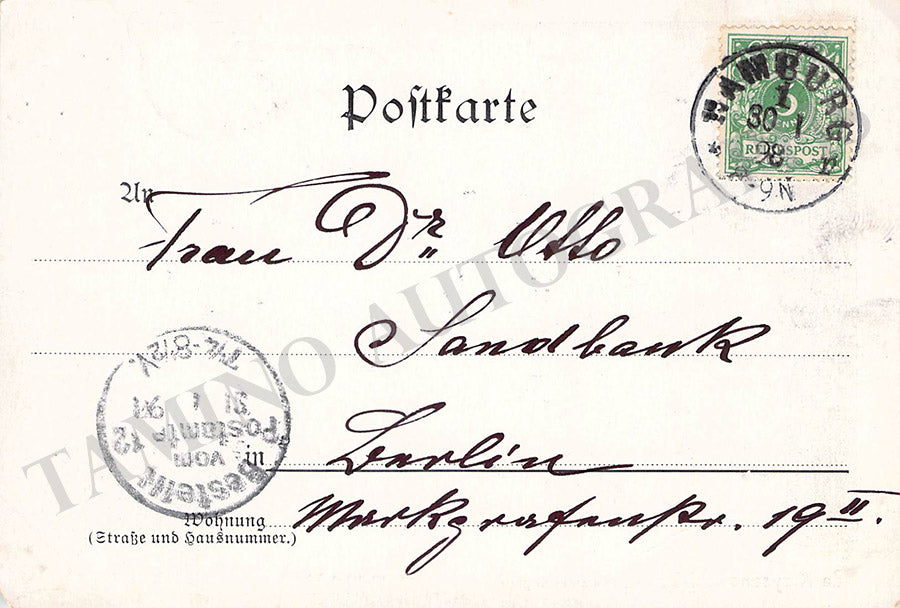 Postkarte
HAMBURG
1
30 1
98
8-9N
5
REICHSPOST
An
Frau Dr. Otto
Sandbank
in Berlin
Wohnung Markgrafenstr. 19 II.
(Straße und Hausnummer.)
Bestellt
vom
Postamte 12
31 1
TAMINO AUTOGRAPHS